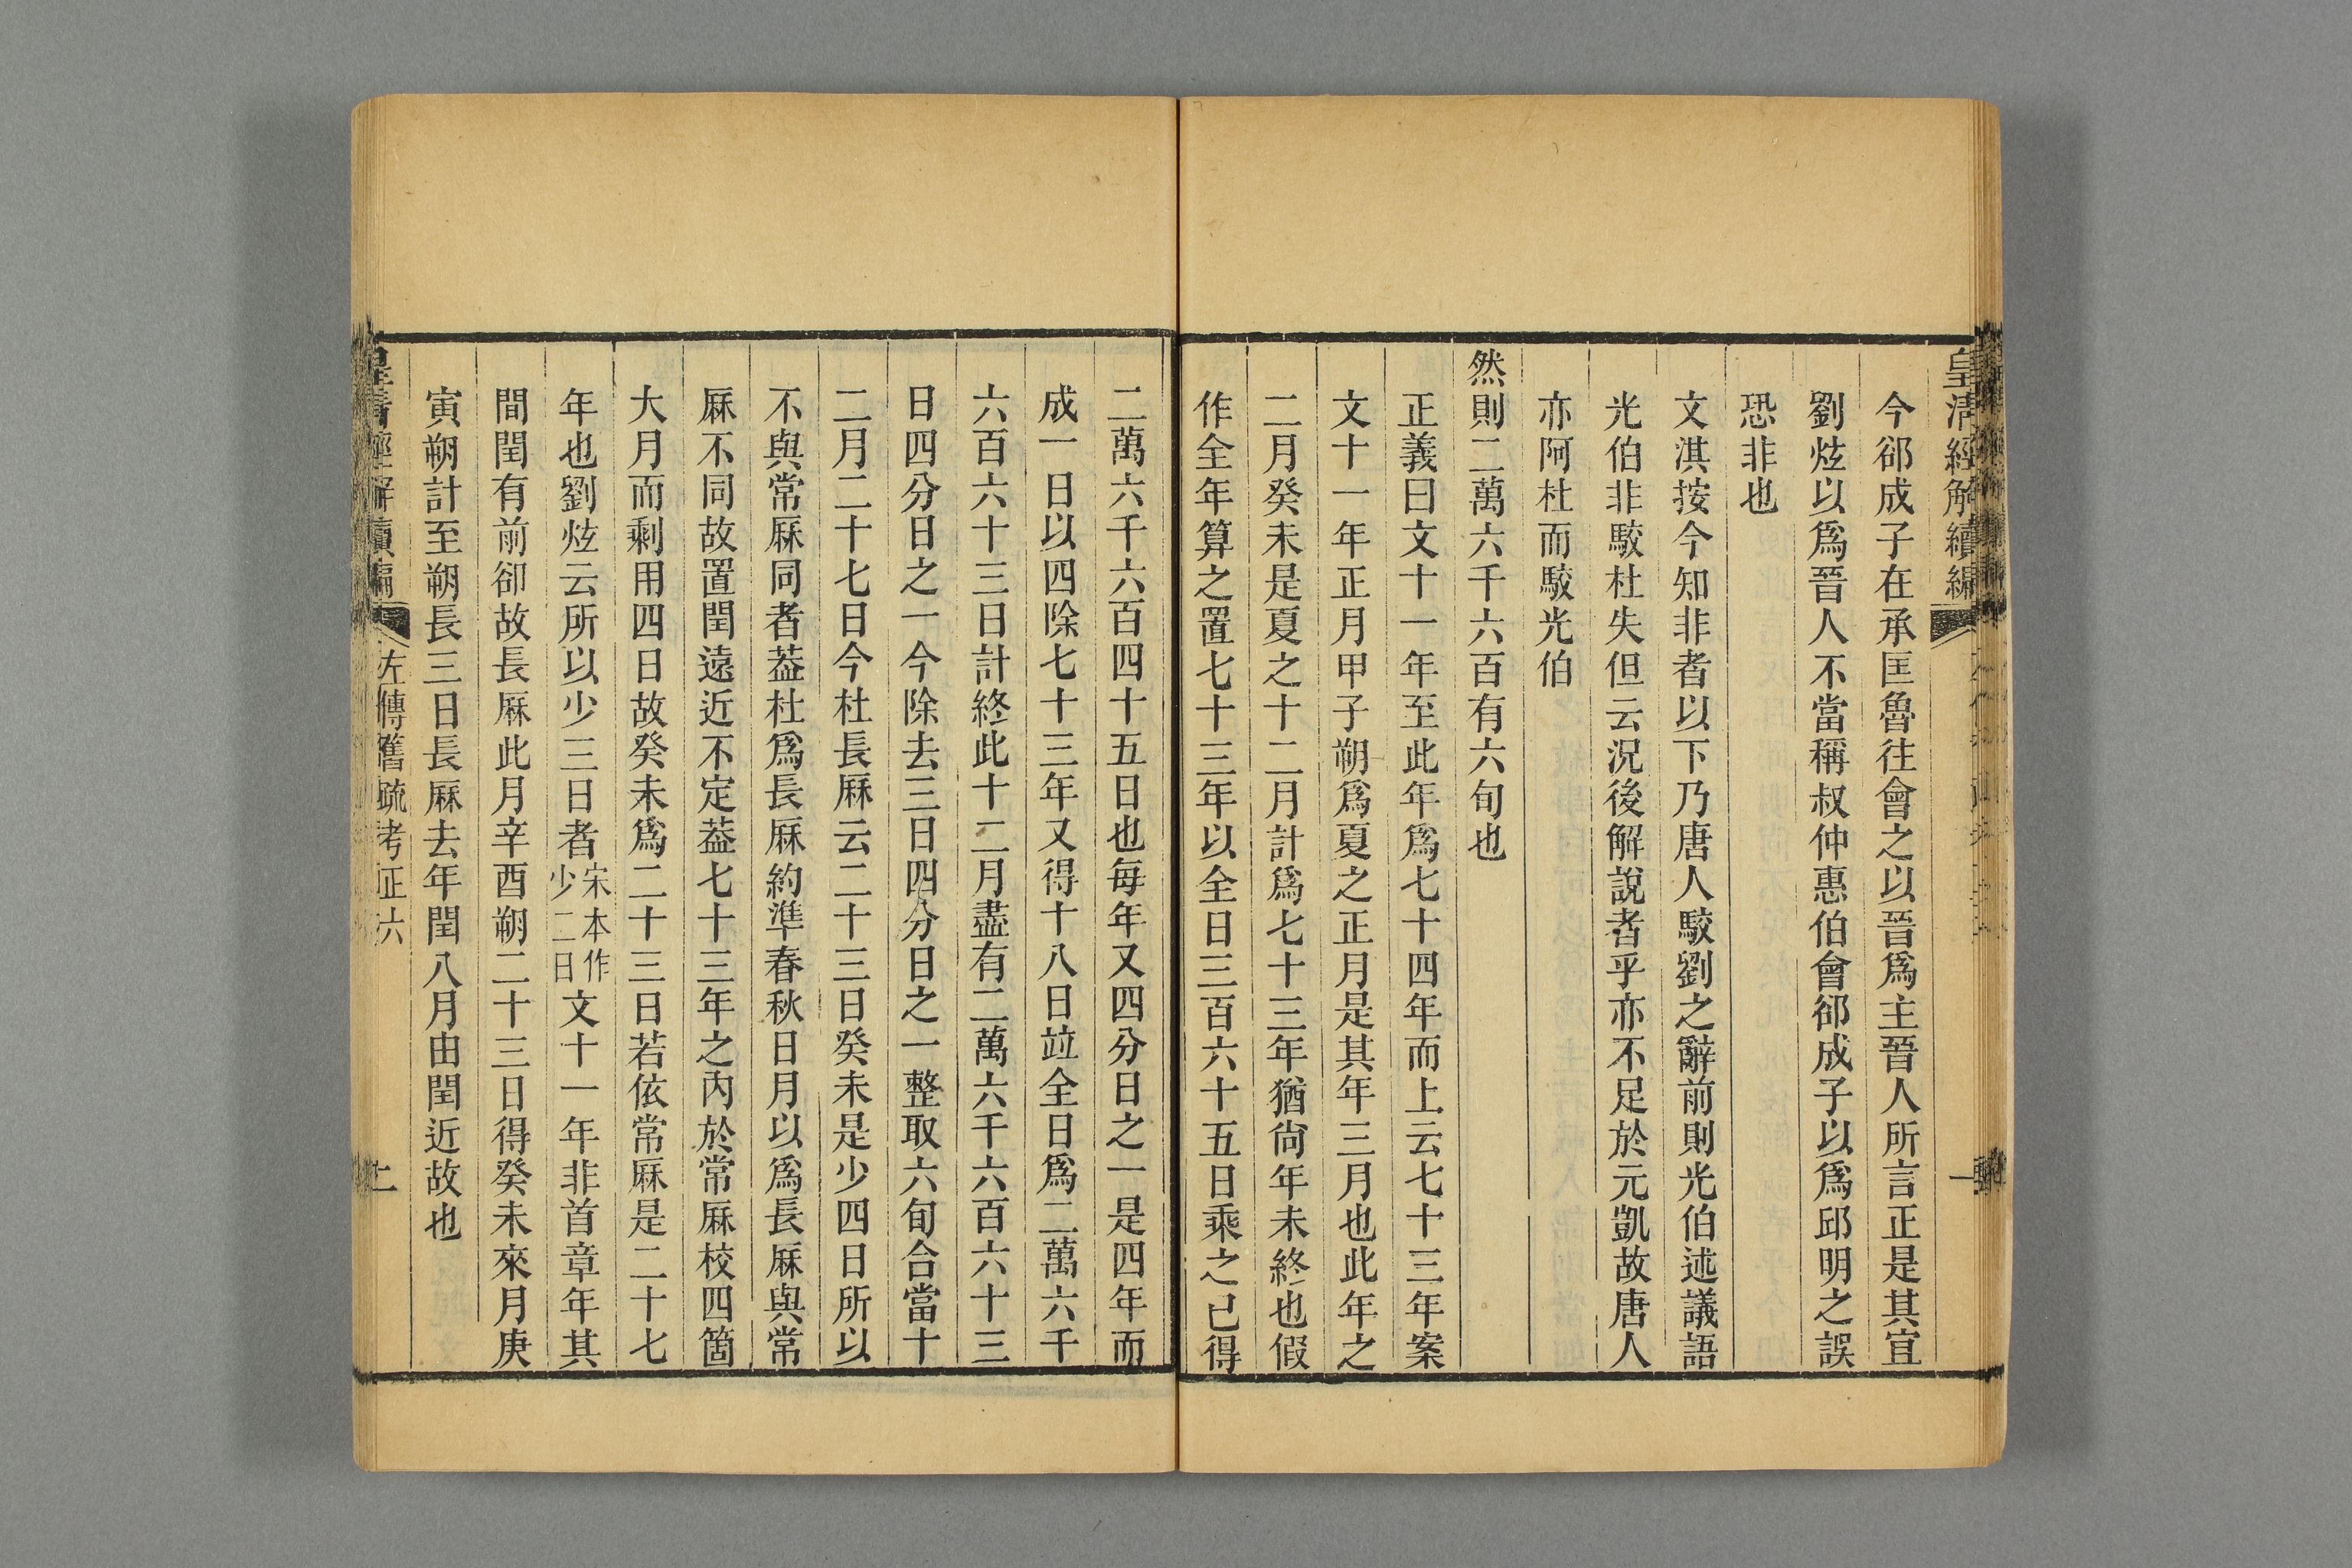 皇清經解續編
今郤成子在承匡魯往會之以晉爲主晉人所言正是其宜
劉炫以爲晉人不當稱叔仲惠伯會郤成子以爲邱明之誤
恐非也
文淇按今知非者以下乃唐人駮劉之辭前則光伯述議語
光伯非駮杜失但云況後解說者乎亦不足於元凱故唐人
亦阿杜而駮光伯
然則二萬六千六百有六旬也
正義曰文十一年至此年爲七十四年而上云七十三年案
文十一年正月甲子朔爲夏之正月是其年三月也此年之
二月癸未是夏之十二月計爲七十三年猶尙年未終也假
作全年算之置七十三年以全日三百六十五日乘之已得
二萬六千六百四十五日也每年又四分日之一是四年而
成一日以四除七十三年又得十八日竝全日爲二萬六千
六百六十三日計終此十二月盡有二萬六千六百六十三
日四分日之一今除去三日四分日之一整取六旬合當十
二月二十七日今杜長厤云二十三日癸未是少四日所以
不與常厤同者葢杜爲長厤約準春秋日月以爲長厤與常
厤不同故置閏遠近不定葢七十三年之內於常厤校四箇
大月而剩用四日故癸未爲二十三日若依常厤是二十七
年也劉炫云所以少三日者宋本作少二日文十一年非首章年其
間閏有前卻故長厤此月辛酉朔二十三日得癸未來月庚
寅朔計至朔長三日長厤去年閏八月由閏近故也
皇清經解續編 左傳舊疏考正六